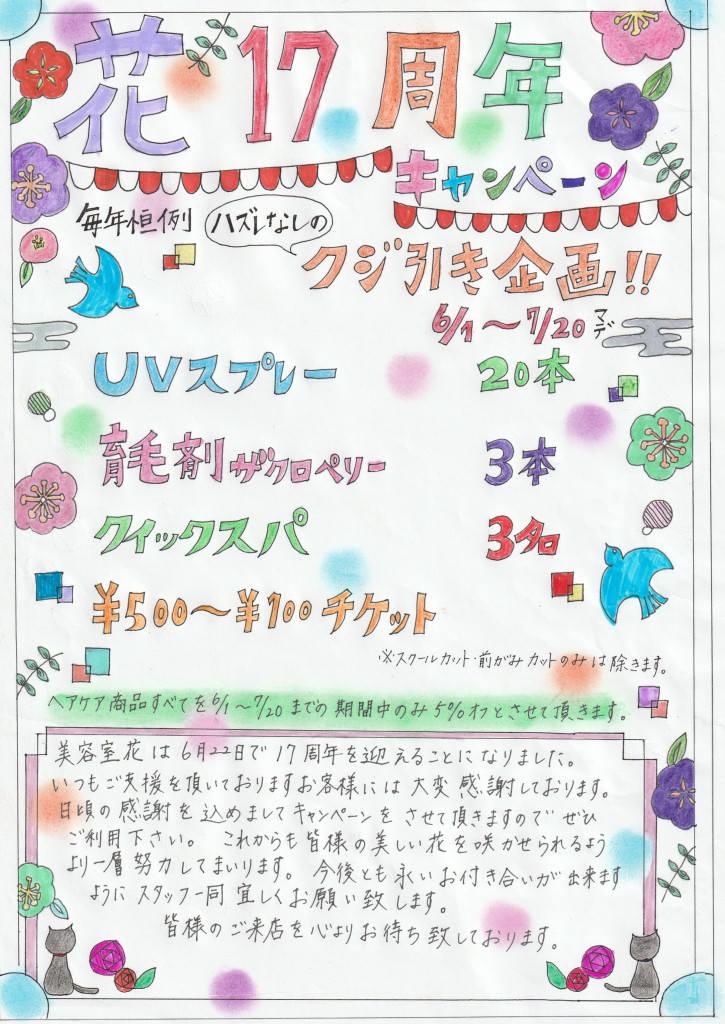 花17周年
キャンペーン
毎年恒例 ハズレなしの
クジ引き企画!!
6/1〜7/20マデ
UVスプレー 20本
育毛剤ザクロペリー 3本
クイックスパ 3名
¥500〜¥100チケット
※スクールカット・前がみカットのみは除きます。
ヘアケア商品すべてを6/1〜7/20までの期間中のみ5%オフとさせて頂きます。
美容室花は6月22日で17周年を迎えることになりました。
いつもご支援を頂いておりますお客様には大変感謝しております。
日頃の感謝を込めましてキャンペーンをさせて頂きますのでぜひ
ご利用下さい。 これからも皆様の美しい花を咲かせられるよう
より一層努力してまいります。 今後とも永いお付き合いが出来ます
ようにスタッフ一同宜しくお願い致します。
皆様のご来店を心よりお待ち致しております。